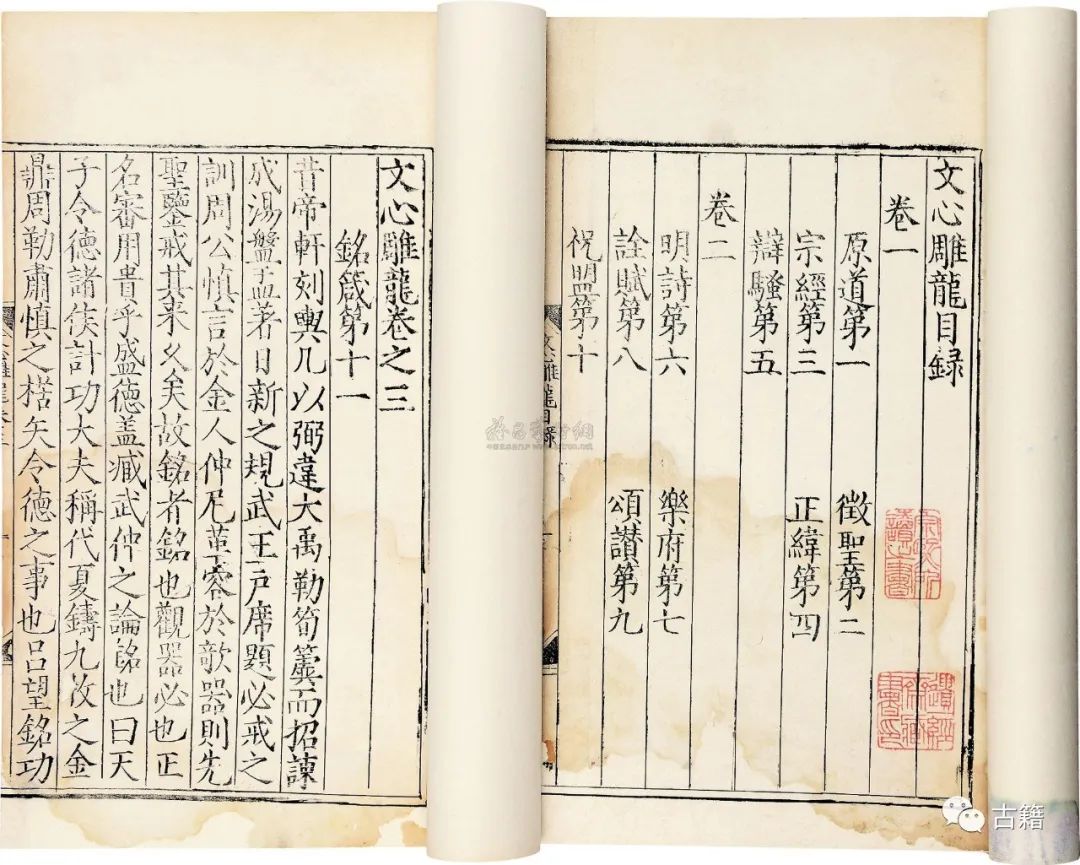 文心雕龍目録
卷一
原道第一 徵聖第二
宗經第三 正緯第四
辯騷第五
卷二
明詩第六 樂府第七
詮賦第八 頌讃第九
祝盟第十
文心雕龍目録
文心雕龍卷之三
銘箴第十一
昔帝軒刻輿几以弼違大禹勒筍簴而招諫
成湯盤盂著日新之規武王戸席題必戒之
訓周公慎言於金人仲尼革容於欹器則先
聖鑒戒其来乆矣故銘者銘也觀器必也正
名審用貴乎盛德盖臧武仲之論銘也曰天
子令德諸侯計功大夫稱代夏鑄九牧之金
鼎周勒肅慎之楛矢令德之事也吕望銘功
古籍